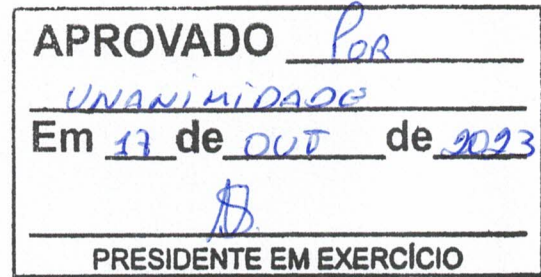 APROVADO POR
UNANIMIDADE
Em 17 de OUT de 2023
PRESIDENTE EM EXERCÍCIO